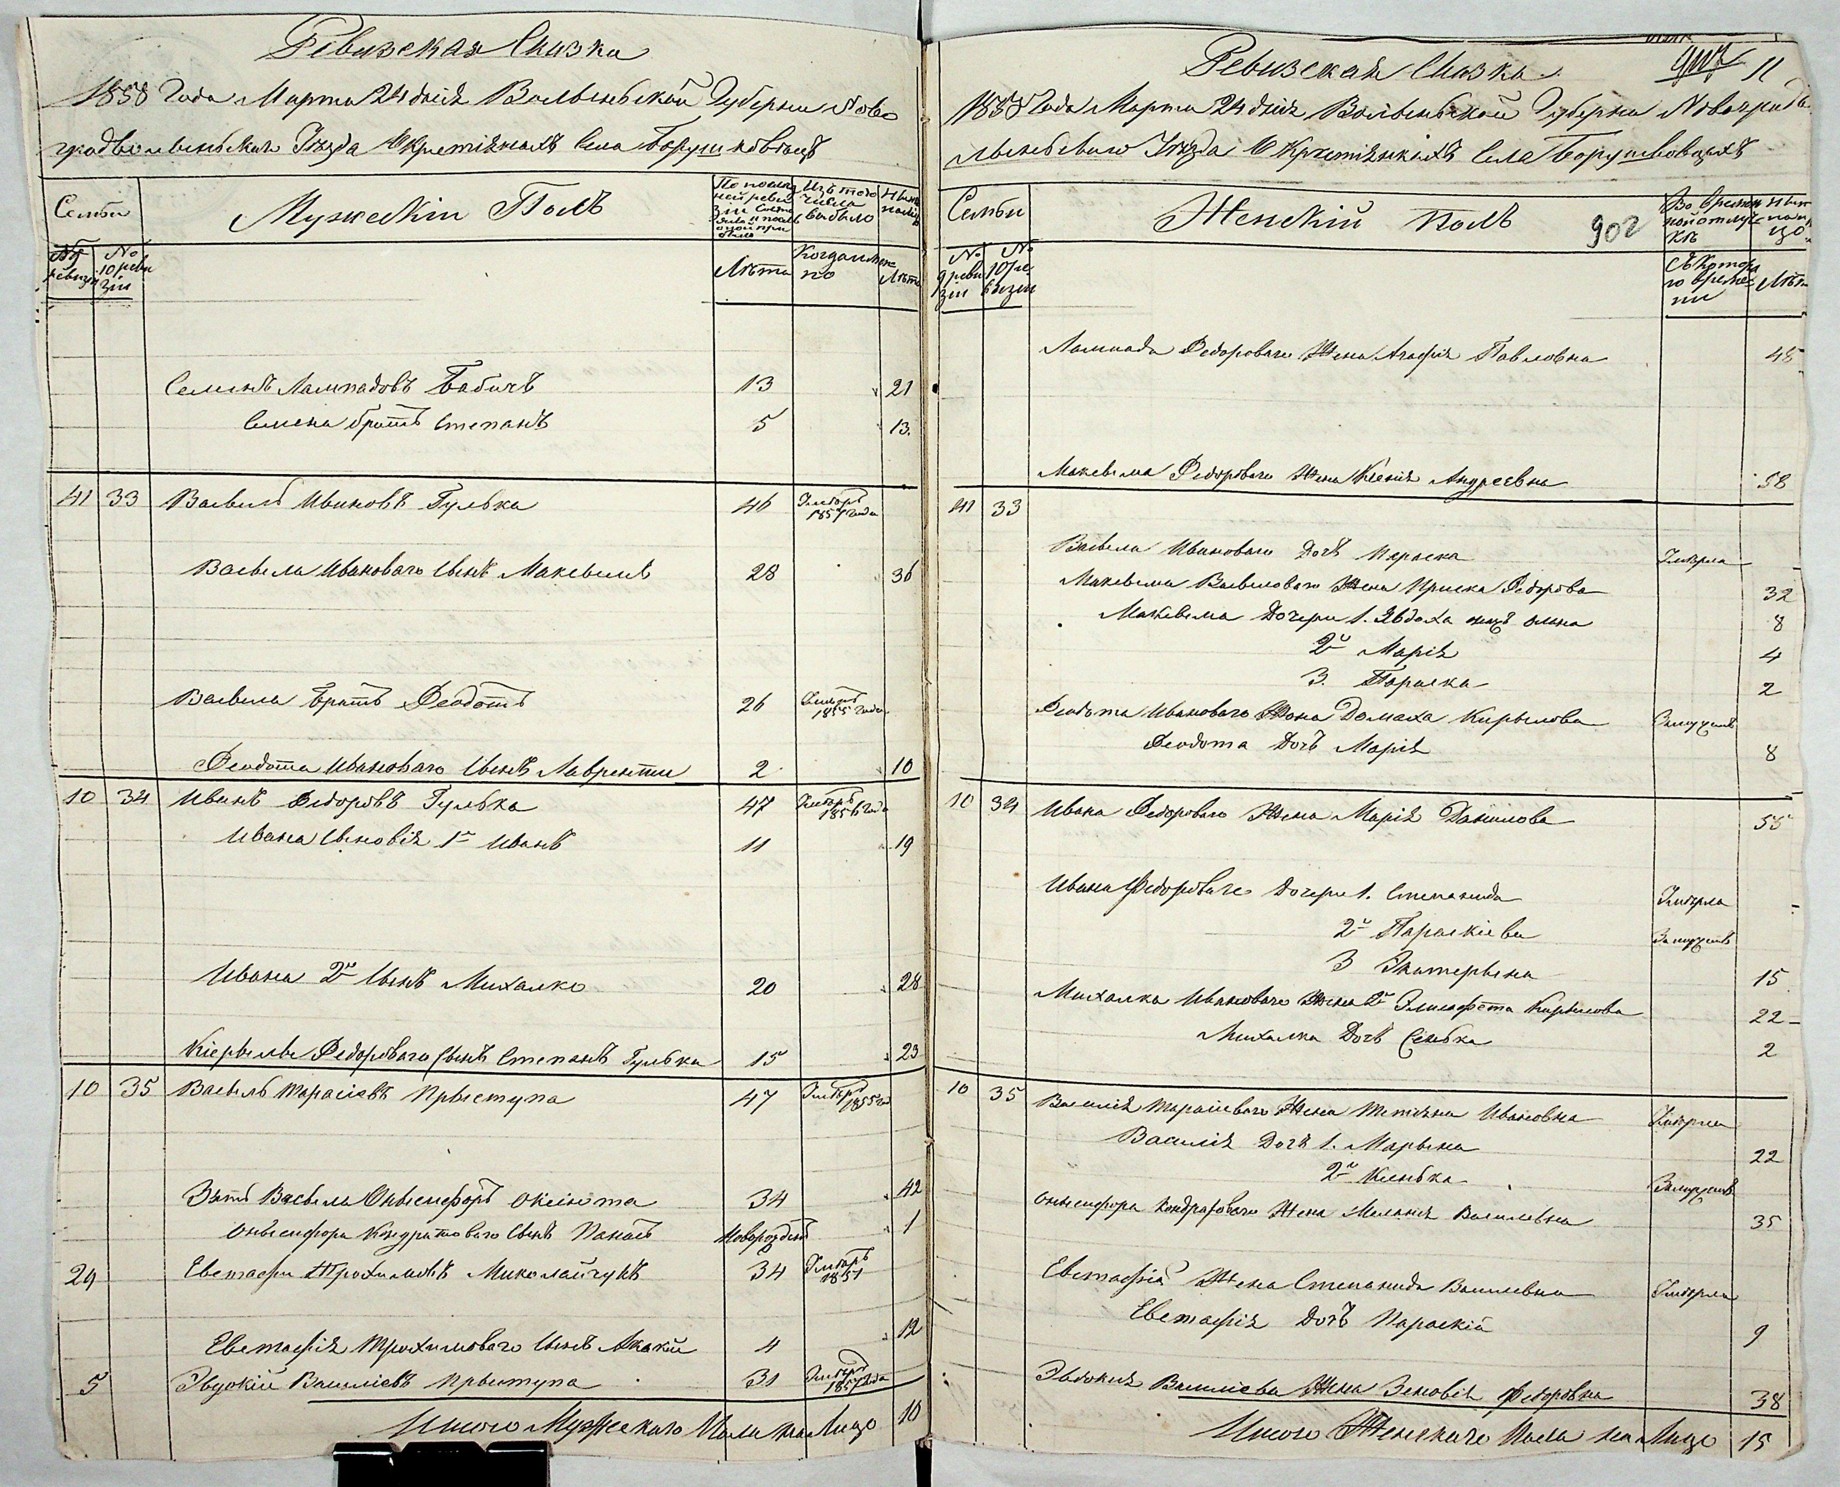 Ревизская Сказка
1858 Года Марта 24 дня Волынской Губернии Ново
градволынскаго Уезда О Крестянахъ Села Борушковецъ
Семьи
Мужескiй Полъ
По послед
ней ревизiи состояло и после оной прибыло
Изъ того числа выбыло
Ныне на лицо
№ 9 ревизiи
№ 10 ревизiи
Лета
Когда именно
Лета
Семенъ Лампадовъ Бабичъ 13 21
Семена братъ Степанъ 5 13.
41 33 Василь Ивановъ Гулька 46 Умеръ 1857 года
Васыла Ивановаго Сынъ Максымъ 28 36
Васыла братъ Феодотъ 26 Умеръ 1855 года
Феодота Ивановаго Сынъ Лаврентiи 2 10
10 34 Иванъ Федоровъ Гулька 47 Умеръ 1856 года
Ивана Сыновiя 1й Иванъ 11 19
Ивана 2й Сынъ Михалко 20 28
Кiерылы Федороваго Сынъ Степанъ Гулька 15 23
10 35 Василь Тарасiевъ Прыступа 47 Умеръ 1855 го
Зять Васыла Онысифоръ Оксiюта 34 42
Онысифора Кондратоваго Сынъ Панасъ Новорозденъ 1
29 Евстафiи Трохимовъ Миколайчукъ 34 Умеръ 1851
Евстафiя Трохимоваго Сынъ Акакiи 4 12
5 Эвдокiй Василiевъ Прыступа 31 Умеръ 1857 года
Итого Мужескаго Пола на Лицо 10
Ревизская Сказка
902 11
1858 Года Марта 24 дня Волынской Губернии Новоградво
лынскаго Уезда О Крестянкахъ Села Борушковецахъ
Семьи
Женскiй Полъ
902
Во временной отлучке
Ныне на лицо
№ 9 ревизiи
№ 10 ревизiи
Съ котораго времени
Лета
Лампада Федороваго Жена Агафiя Павловна 48
Максыма Федороваго Жена Ксенiя Андреевна 58
41 33
Васыла Ивановаго Дочь Параска Умерла
Максыма Васылеваго Жена Приска Федорова 32
Максыма Дочери 1. Явдоха онаже Олена 8
2я Марiя 4
3. Параска 2
Феодота Ивановаго Жена Домаха Кирылова Замужемъ
Феодота Дочь Марiя 8
10 34 Ивана Федороваго Жена Марiя Данилова 55
Ивана Федороваго Дочери 1. Степанида Умерла
2я Параскiева Замужемъ
3 Экатерына 15
Михалка Ивановаго Жена 2я Элисафета Кирылова 22
Михалка Дочь Сенька 2
10 35 Василiя Тарасiеваго Жена Тетiяна Ивановна Умерла
Василiя Дочь 1. Марына 22
2я Ксенька Замужемъ
Онысифора Кондратоваго Жена Меланiя Василевна 35
Евстафiя Жена Степанида Василевна Умерла
Евстафiя Дочь Параскiя 9
Эвдокiя Василiева Жена Зеновiя Федоровна 38
Итого Женскаго Пола на Лицо 15